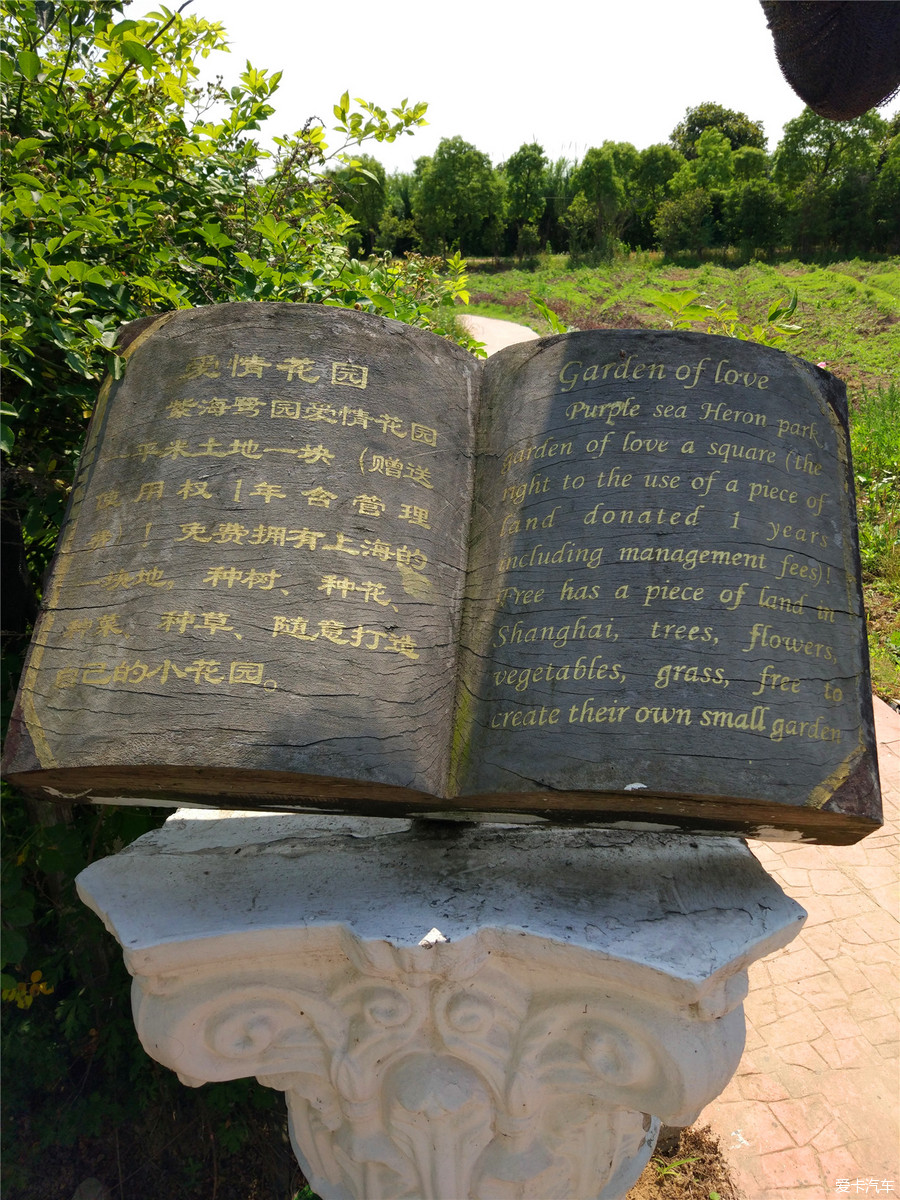 爱情花园
紫海鹭园爱情花园
一平米土地一块（赠送
使用权1年含管理
费）！免费拥有上海的
一块地，种树、种花、
种菜、种草、随意打造
自己的小花园。
Garden of love
Purple sea Heron park,
garden of love a square (the
right to the use of a piece of
land donated 1 years
including management fees)!
Free has a piece of land in
Shanghai, trees, flowers,
vegetables, grass, free to
create their own small garden
爱卡汽车